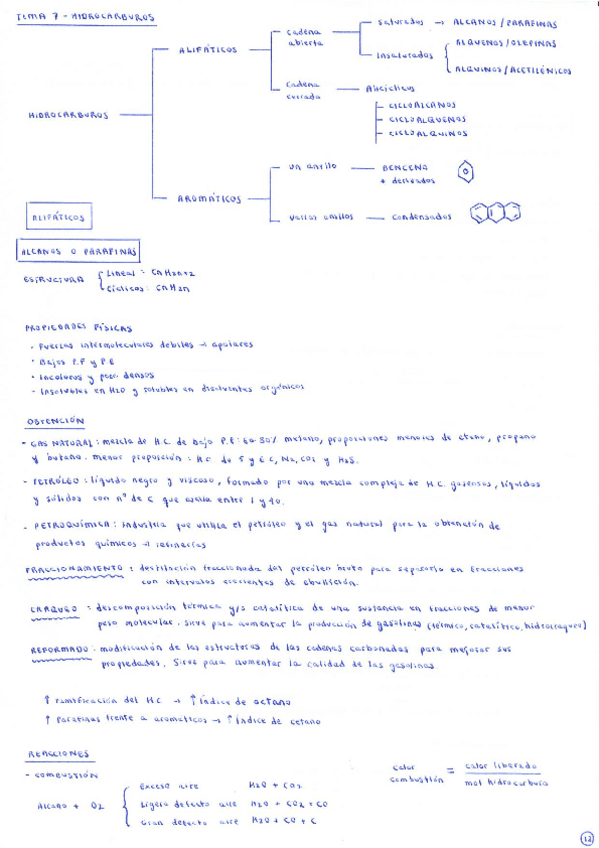 TEMA 7 - HIDROCARBUROS
HIDROCARBUROS
ALIFÁTICOS
cadena abierta
saturados → ALCANOS / PARAFINAS
insaturados
ALQUENOS / OLEFINAS
ALQUINOS / ACETILÉNICOS
cadena cerrada
Alicíclicos
CICLOALCANOS
CICLOALQUENOS
CICLOALQUINOS
AROMÁTICOS
un anillo
BENCENO
+ derivados
varios anillos
condensados
ALIFÁTICOS
ALCANOS O PARAFINAS
ESTRUCTURA
Lineal: CnH2n+2
Cíclicos: CnH2n
PROPIEDADES FÍSICAS
· Fuerzas intermoleculares débiles → apolares
· Bajos P.F y P.E
· Incoloros y poco densos
· Insolubles en H2O y solubles en disolventes orgánicos
OBTENCIÓN
- GAS NATURAL: mezcla de H.C. de bajo P.E: 60-80% metano, proporciones menores de etano, propano
y butano. menor proporción: H.C. de 5 y 6 C, N2, CO2 y H2S.
- PETRÓLEO: líquido negro y viscoso, formado por una mezcla compleja de H.C. gaseosos, líquidos
y sólidos con nº de C que oscila entre 1 y 40.
- PETROQUÍMICA: industria que utiliza el petróleo y el gas natural para la obtención de
productos químicos → refinerías
FRACCIONAMIENTO: destilación fraccionada del petróleo bruto para separarlo en fracciones
con intervalos crecientes de ebullición.
CRAQUEO: descomposición térmica y/o catalítica de una sustancia en fracciones de menor
peso molecular. Sirve para aumentar la producción de gasolinas (térmico, catalítico, hidrocraqueo)
REFORMADO: modificación de las estructuras de las cadenas carbonadas para mejorar sus
propiedades. Sirve para aumentar la calidad de las gasolinas.
↑ ramificación del HC → ↑ índice de octano
↑ Parafinas frente a aromáticos → ↑ índice de cetano
REACCIONES
- COMBUSTIÓN
Alcano + O2
Exceso aire H2O + CO2
Ligero defecto aire H2O + CO2 + CO
Gran defecto aire H2O + CO + C
calor combustión = calor liberado / mol hidrocarburo
12